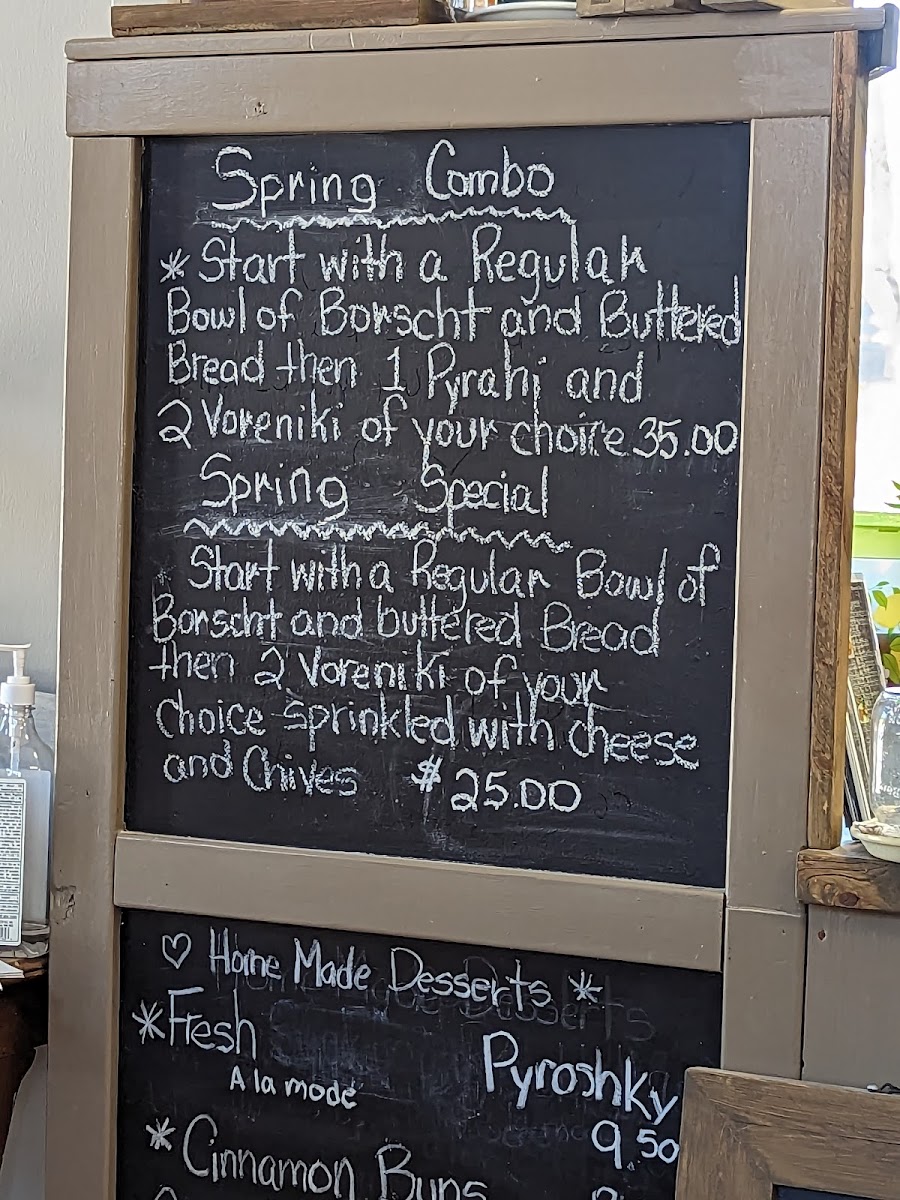 Spring Combo
* Start with a Regular
Bowl of Borscht and Buttered
Bread then 1 Pyrahi and
2 Voreniki of your choice 35.00
Spring Special
Start with a Regular Bowl of
Borscht and buttered Bread
then 2 Voreniki of your
Choice sprinkled with cheese
and Chives $25.00
♡ Home Made Desserts *
* Fresh Pyroshky
A la mode 9.50
* Cinnamon Buns